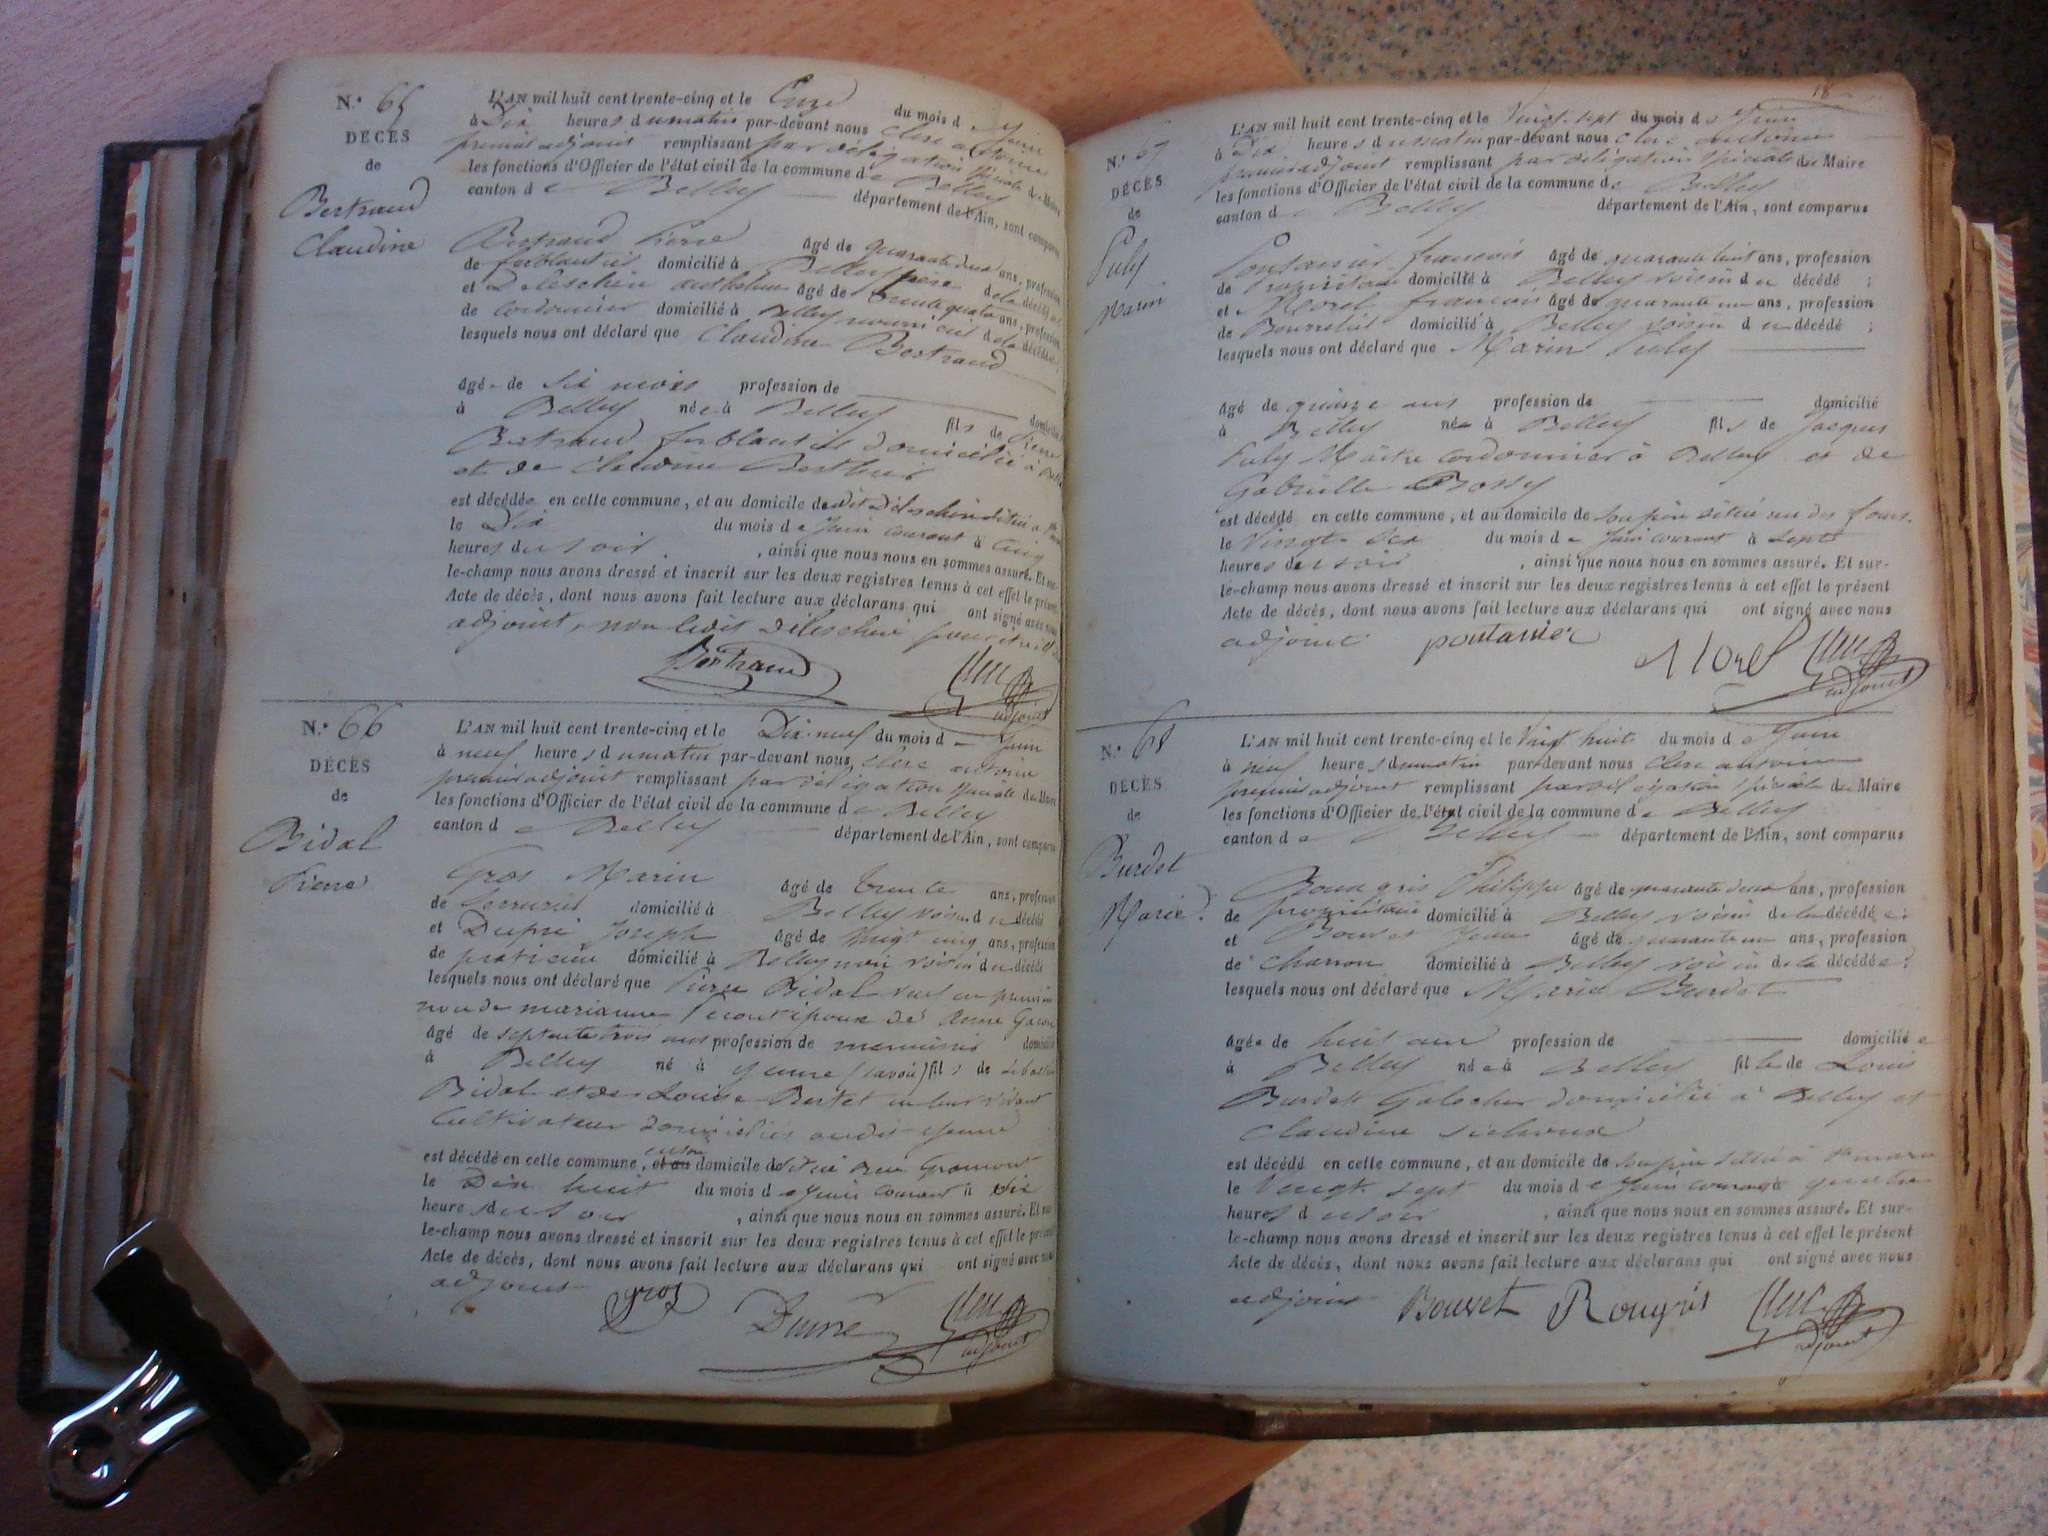 N.° 65
DÉCÈS
de
Bertrand
Claudine
L'AN mil huit cent trente-cinq et le Onze du mois d e Juin
à Dix heures du matin par-devant nous Clerc antoine
premier adjoint remplissant par délégation spéciale du Maire
les fonctions d'Officier de l'état civil de la commune de Belley
canton de Belley département de l'Ain, sont comparus
Bertrand Pierre âgé de quarante deux ans, profession
de ferblantier domicilié à Belley père de la décédée
et Deleschin âgé de trente quatre ans, profession
de cordonnier domicilié à Belley de la décédée
lesquels nous ont déclaré que Claudine Bertrand
âgée de six mois profession de domicilié
à Belley née à Belley fil de Pierre
Bertrand ferblantier domicilié à Belley
et de Claudine Berthier
est décédée en cette commune, et au domicile du dit Deleschin
le Dix du mois de Juin courant à cinq
heures du soir, ainsi que nous nous en sommes assuré. Et sur-
le-champ nous avons dressé et inscrit sur les deux registres tenus à cet effet le présent
Acte de décès, dont nous avons fait lecture aux déclarans qui ont signé avec nous
adjoint, non ledit Deleschin
Bertrand Clerc adjoint
N.° 66
DÉCÈS
de
Bidal
Pierre
L'AN mil huit cent trente-cinq et le Dix-neuf du mois de Juin
à neuf heures du matin par-devant nous clerc antoine
premier adjoint remplissant par délégation spéciale du Maire
les fonctions d'Officier de l'état civil de la commune de Belley
canton de Belley département de l'Ain, sont comparus
Gros Marin âgé de trente ans, profession
de Serrurier domicilié à Belley voisin du décédé
et Dupré Joseph âgé de Vingt cinq ans, profession
de praticien domicilié à Belley voisin du décédé
lesquels nous ont déclaré que Pierre Bidal veuf en premier
noce de marianne époux de Anne Gacon
âgé de septante trois ans profession de menuisier domicilié
à Belley né à yenne (savoie) fils de
Bidal et de Louise Bertet en leur vivant
Cultivateur domiciliés audit yenne
est décédé en cette commune, et au domicile
le Dix huit du mois de Juin courant à
heures du soir, ainsi que nous nous en sommes assuré. Et sur-
le-champ nous avons dressé et inscrit sur les deux registres tenus à cet effet le présent
Acte de décès, dont nous avons fait lecture aux déclarans qui ont signé avec nous
adjoint gros
Dupré Clerc adjoint
18
N.° 67
DÉCÈS
de
Puly
Marin
L'AN mil huit cent trente-cinq et le Vingt-sept du mois de Juin
à Dix heures du matin par-devant nous clerc antoine
premier adjoint remplissant par délégation spéciale du Maire
les fonctions d'Officier de l'état civil de la commune de Belley
canton de Belley département de l'Ain, sont comparus
Pontanier francois âgé de quarante huit ans, profession
de Propriétaire domicilié à Belley voisin du décédé ;
et Morel francois âgé de quarante un ans, profession
de Bourrelier domicilié à Belley voisin du décédé ;
lesquels nous ont déclaré que Marin Puly
âgé de quinze ans profession de domicilié
à Belley né à Belley fils de Jacques
Puly Maître cordonnier à Belley et de
Gabrielle Brossy
est décédé en cette commune, et au domicile de son père située rue des fours.
le Vingt Six du mois de Juin courant à Sept
heures du soir, ainsi que nous nous en sommes assuré. Et sur-
le-champ nous avons dressé et inscrit sur les deux registres tenus à cet effet le présent
Acte de décès, dont nous avons fait lecture aux déclarans qui ont signé avec nous
adjoint pontanier
Morel Clerc adjoint
N.° 68
DÉCÈS
de
Burdet
Marie
L'AN mil huit cent trente-cinq et le Vingt huit du mois de Juin
à neuf heures du matin par-devant nous clerc antoine
premier adjoint remplissant par délégation spéciale du Maire
les fonctions d'Officier de l'état civil de la commune de Belley
canton de Belley département de l'Ain, sont comparus
Rougris Philippe âgé de quarante deux ans, profession
de propriétaire domicilié à Belley voisin de la décédée ;
et Bouvet Jean âgé de quarante un ans, profession
de charron domicilié à Belley voisin de la décédée ;
lesquels nous ont déclaré que Marie Burdet
âgée de huit ans profession de domiciliée
à Belley née à Belley fille de Louis
Burdet Galocher domicilié à Belley et
Claudine
est décédé en cette commune, et au domicile de son père située à
le Vingt Sept du mois de Juin courant à quatre
heures du soir, ainsi que nous nous en sommes assuré. Et sur-
le-champ nous avons dressé et inscrit sur les deux registres tenus à cet effet le présent
Acte de décès, dont nous avons fait lecture aux déclarans qui ont signé avec nous
adjoint Bouvet Rougris Clerc adjoint